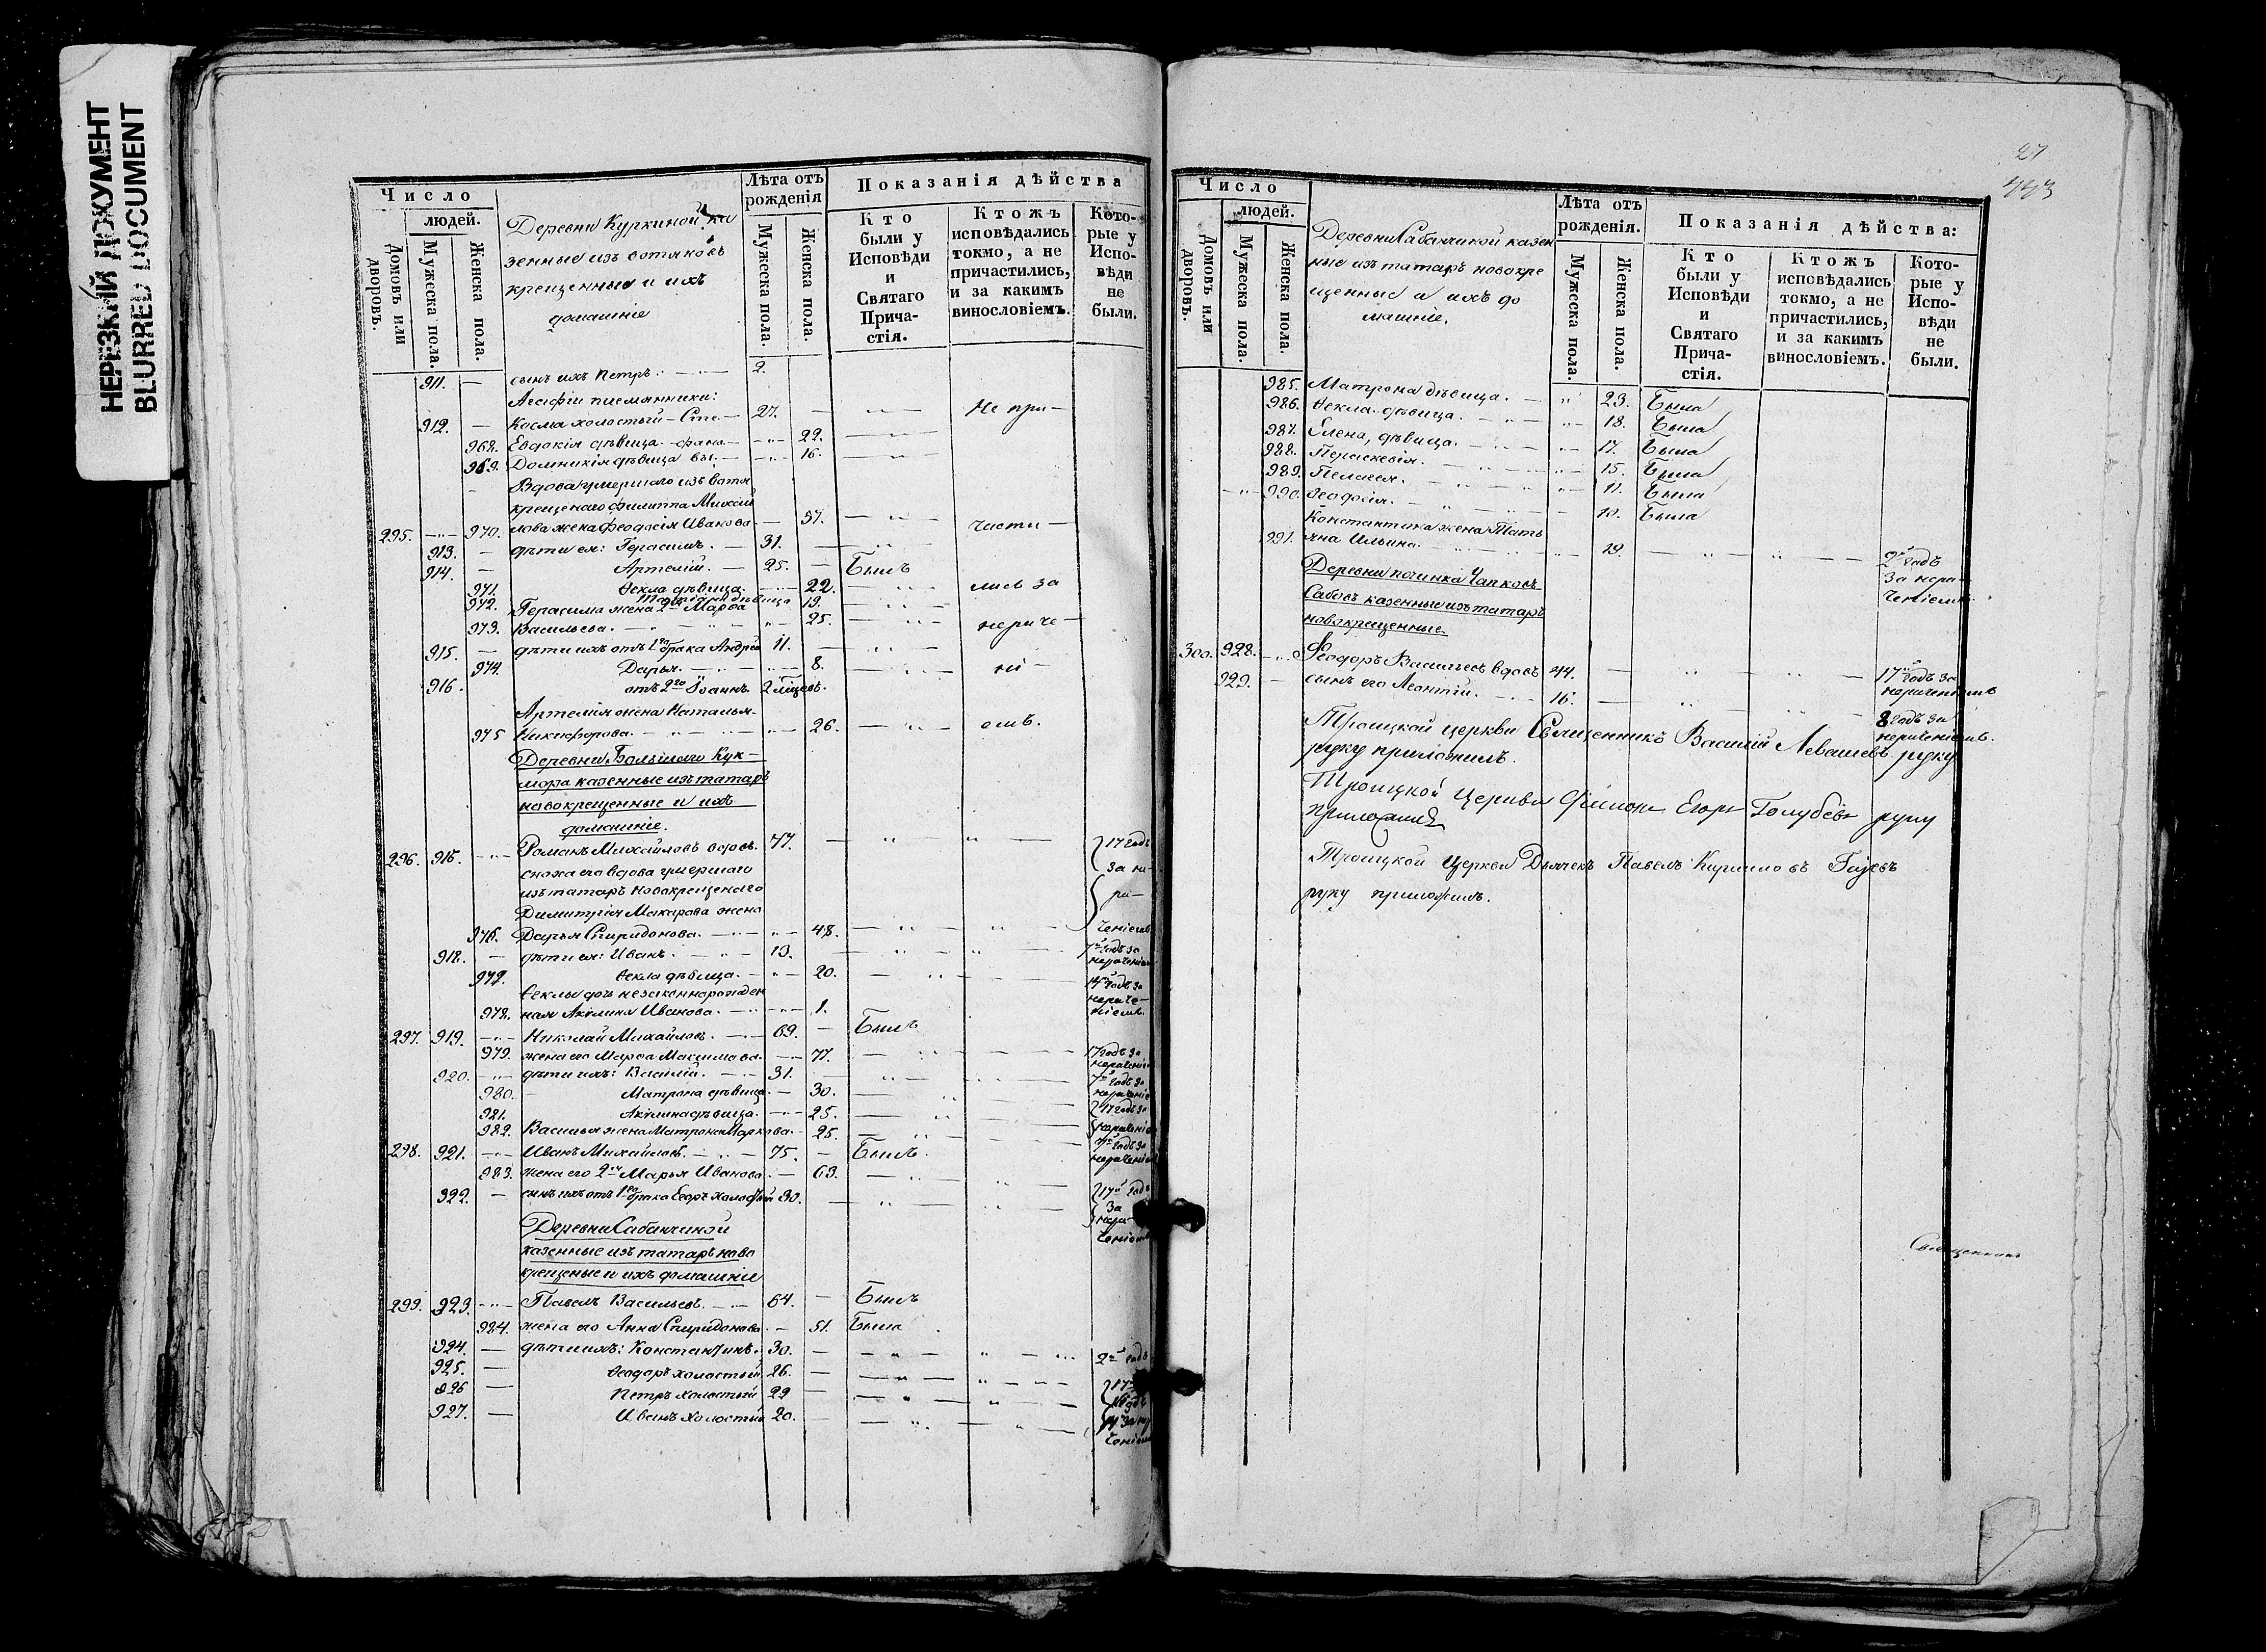 НЕРЕЗКИЙ ДОКУМЕНТ
BLURRED DOCUMENT
Число
людей.
Домовъ или дворовъ.
Мужеска пола.
Женска пола.
Деревни Куркиной ка
зенные изъ вотяковъ
крещенные и ихъ
домашніе
Лѣта отъ рожденія
Мужеска пола.
Женска пола.
Показанія дѣйства
Кто были у Исповѣди и Святаго Причастія.
Ктожъ исповѣдались токмо, а не причастились, и за какимъ винословіемъ.
Которые у Исповѣди не были.
911. — сынъ ихъ Петръ. 2.
Агафіи племянники:
912. — Косма холостый — Сте. — 27. — Не при—
968. Евдокія дѣвица — фана. — 22.
969. Домникія дѣвица вы. — 16.
Вдова умершаго изъ вотя
крещенаго Филиппа Михай
295. 970. лова жена Феодосія Иванова. — 57. чисти—
913. — дѣти ея: Герасимъ. — 31.
914. — Артемій. — 25. — Былъ
971. Ѳекла дѣвица. 22. лись за
972. дѣвица 19.
Герасима жена 2я Марѳа
973. Васильева. 25. нераче—
915. — дѣти ихъ отъ 1го брака Андрей 11.
974. Дарья. 8. ні—
916. отъ 2го Іоаннъ. 2 мѣсев.
Артемія жена Наталья
975 Никифорова. 26. емъ.
Деревни Большаго Кук—
мора казенные изъ татаръ
новокрещенные и ихъ
домашніе.
296. 916. Романъ Михайловъ вдовъ. 77. 17 годъ
сноха его вдова умершаго За не—
изъ татаръ новокрещенаго ра—
Димитрія Макарова жена
976. Дарья Спиридонова. 48. ченіемъ
918. — дѣти ея: Иванъ. 13. 7й годъ за нераченіем
977. Ѳекла дѣвица. 20. годъ за
Ѳеклы дочь незаконнорожден нераче—
978. ная Акилина Иванова. 1. ніемъ.
297. 919. Николай Михайловъ. 69. — Былъ
979. жена его Марѳа Максимова. 77. 17 годъ за нераченіе
920. дѣти ихъ: Василій. 31. 7й годъ за нераченіе
980. Матрона дѣвица. — 30.
981. Акилина дѣвица. 25. 17 годъ за нераченіе
982. Василья жена Матрона Маркова. 25. годъ за нераченіе
298. 921. Иванъ Михайловъ. 75. — Былъ.
983. жена его 2я Марья Иванова. — 63.
922. — сынъ ихъ отъ 1го брака Егоръ холостый 30. 17й годъ За нера— ченіемъ
Деревни Сабанчиной
казенные изъ татаръ ново
крещеные и ихъ домашніе
299. 923. Павелъ Васильевъ. 64. — Былъ
984. жена его Анна Спиридонова. — 51. Была
924. — дѣти ихъ: Константинъ. 30. — 2й годъ
925. — Ѳеодоръ холостый 26. —
926 — Петръ холостый 22 —
927. — Иванъ холостый 20. — ченіем
27
443
Число
людей.
Домовъ или дворовъ.
Мужеска пола.
Женска пола.
Деревни Сабанчиной казен
ные изъ татаръ новокре
щенные и ихъ до
машніе.
Лѣта отъ рожденія.
Мужеска пола.
Женска пола.
Показанія дѣйства:
Кто были у Исповѣди и Святаго Причастія.
Ктожъ исповѣдались токмо, а не причастились, и за какимъ винословіемъ.
Которые у Исповѣди не были.
985. Матрона дѣвица. — 23. Была
986. Ѳекла дѣвица. 18. Была
987. Елена, дѣвица. 17. Была
988. Параскевія. 15. Была
989. Пелагея. 11. Была
990. Ѳеодосія. 10. Была
Константина жена Татья
991. яна Ильина. 19. 2й годъ За нера— ченіемъ.
Деревни починка Чапковъ
Сабовъ казенные изъ татаръ
новокрещенные.
300. 928. Ѳеодоръ Васильевъ вдовъ 44. 17й годъ за нераченіемъ
929. — сынъ его Леонтій. 16. 8 годъ за нераченіемъ.
Троицкой церкви Священникъ Василій Левашевъ руку
руку приложилъ.
Троицкой Церкви Егоръ Голубевъ руку
приложилъ
Троицкой Церкви Дьячекъ Павелъ Кирилловъ
руку приложилъ.
Священникъ